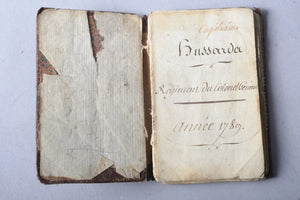 Capitaine
Hussards
Régiment du Colonel Général
année 1789.